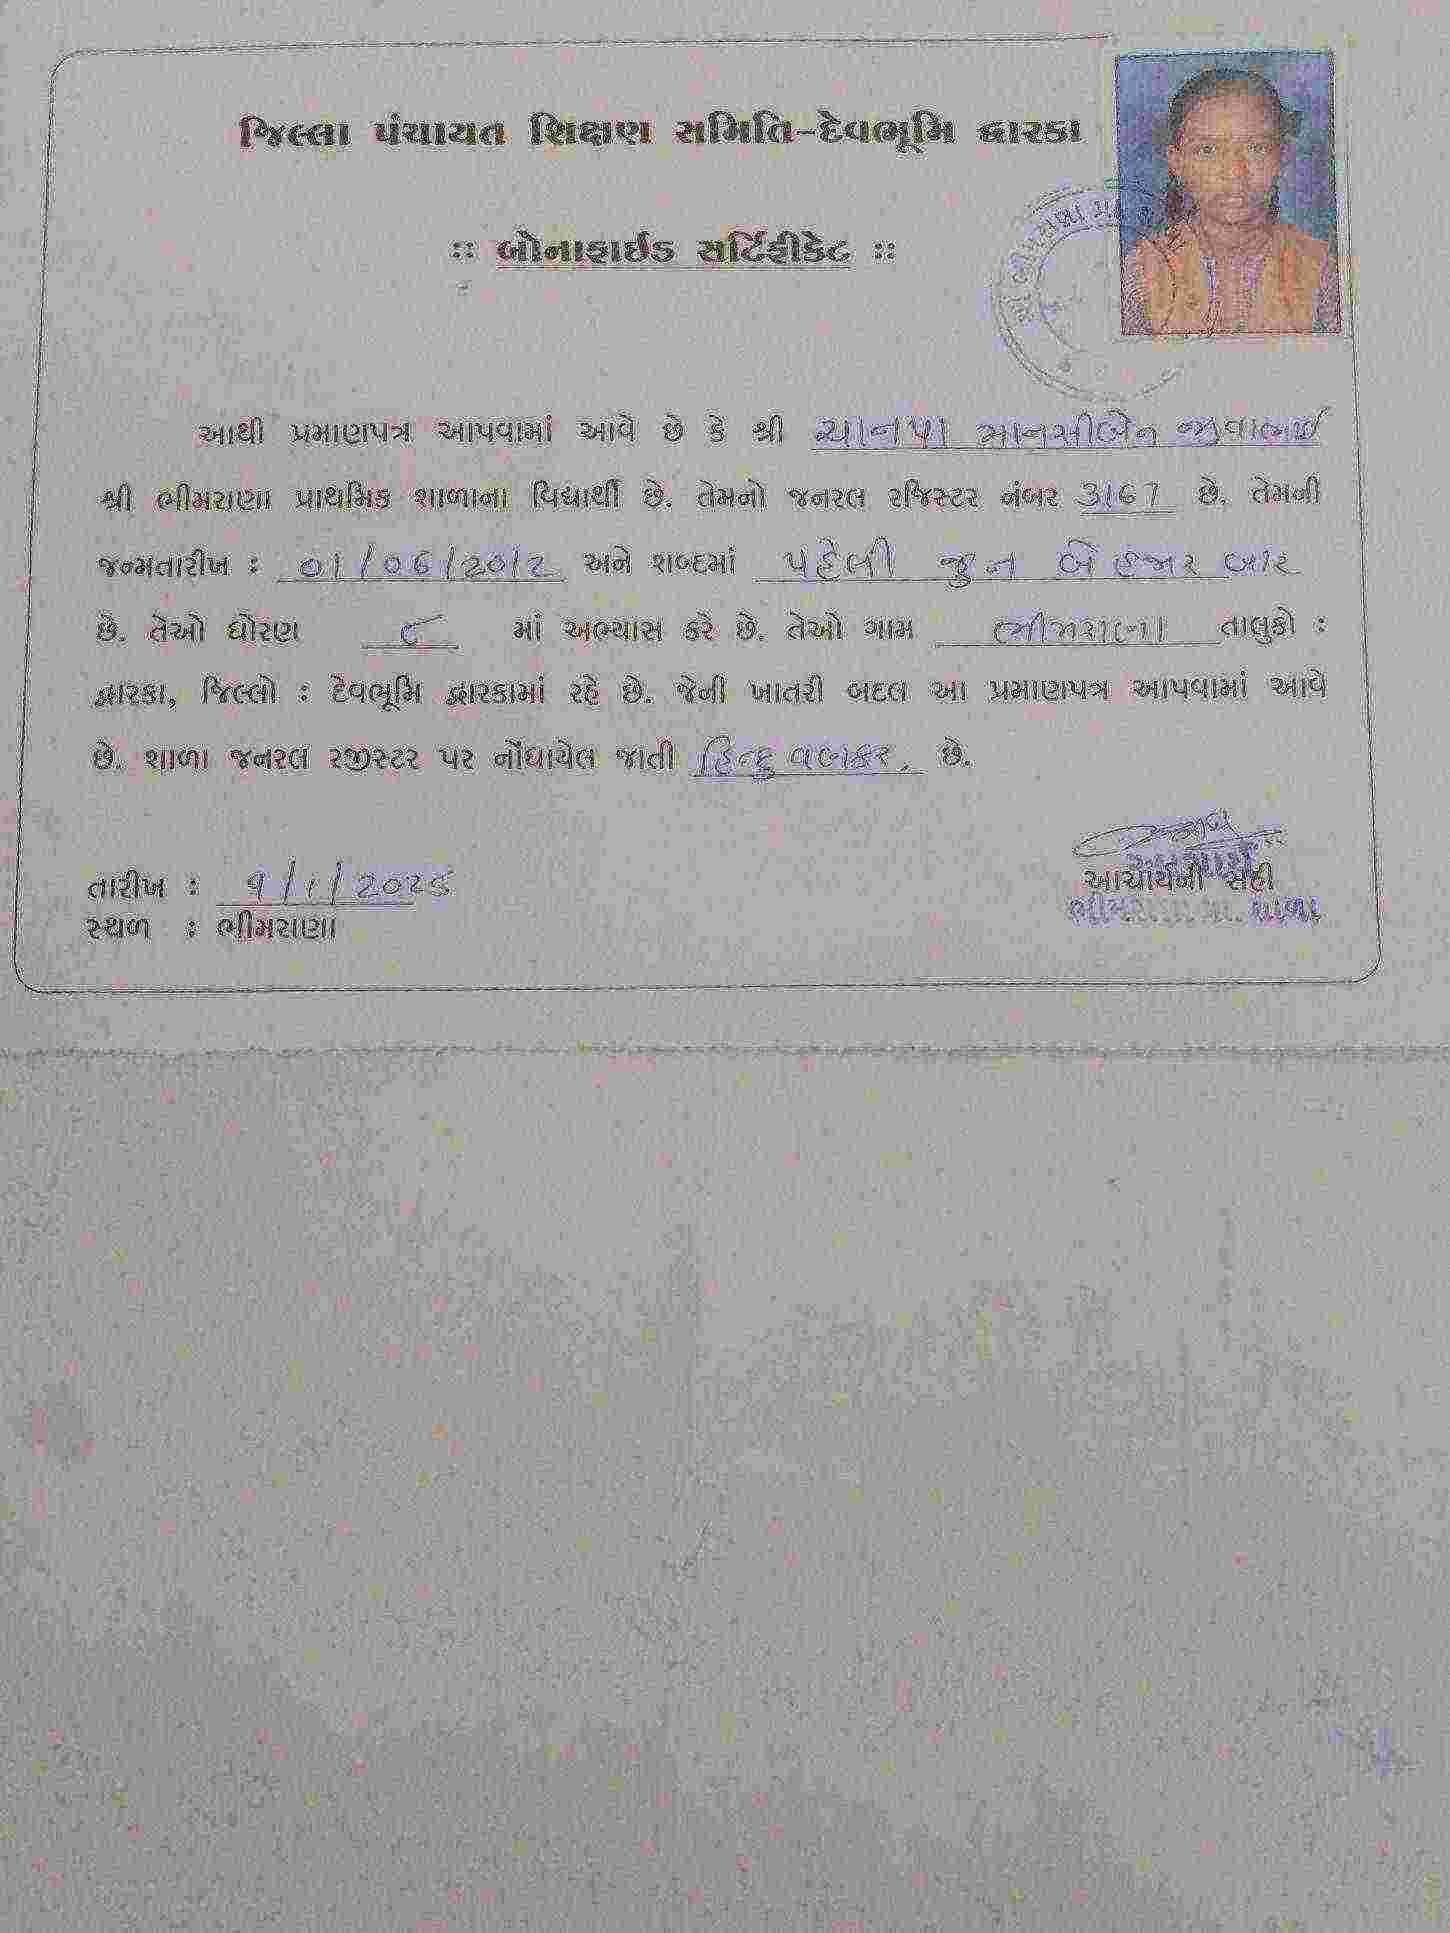 જિલ્લા પંચાયત શિક્ષણ સમિતિ-દેવભૂમિ દ્વારકા
:: બોનાફાઈડ સર્ટિફીકેટ ::
આથી પ્રમાણપત્ર આપવામાં આવે છે કે શ્રી ચાનપા માનસીબેન જીવાભાઈ
શ્રી ભીમરાણા પ્રાથમિક શાળાના વિદ્યાર્થી છે. તેમનો જનરલ રજિસ્ટર નંબર 3167 છે. તેમની
જન્મતારીખ : 01/06/2012 અને શબ્દમાં પહેલી જુન બે હજાર બાર
છે. તેઓ ધોરણ ૮ માં અભ્યાસ કરે છે. તેઓ ગામ ભીમરાણા તાલુકો :
દ્વારકા, જિલ્લો : દેવભૂમિ દ્વારકામાં રહે છે. જેની ખાતરી બદલ આ પ્રમાણપત્ર આપવામાં આવે
છે. શાળા જનરલ રજીસ્ટર પર નોંધાયેલ જાતી હિન્દુ વણકર. છે.
આચાર્યની સહી
તારીખ : ૧/૧/
ભીમરાણા પ્રા. શાળા
સ્થળ : ભીમરાણા